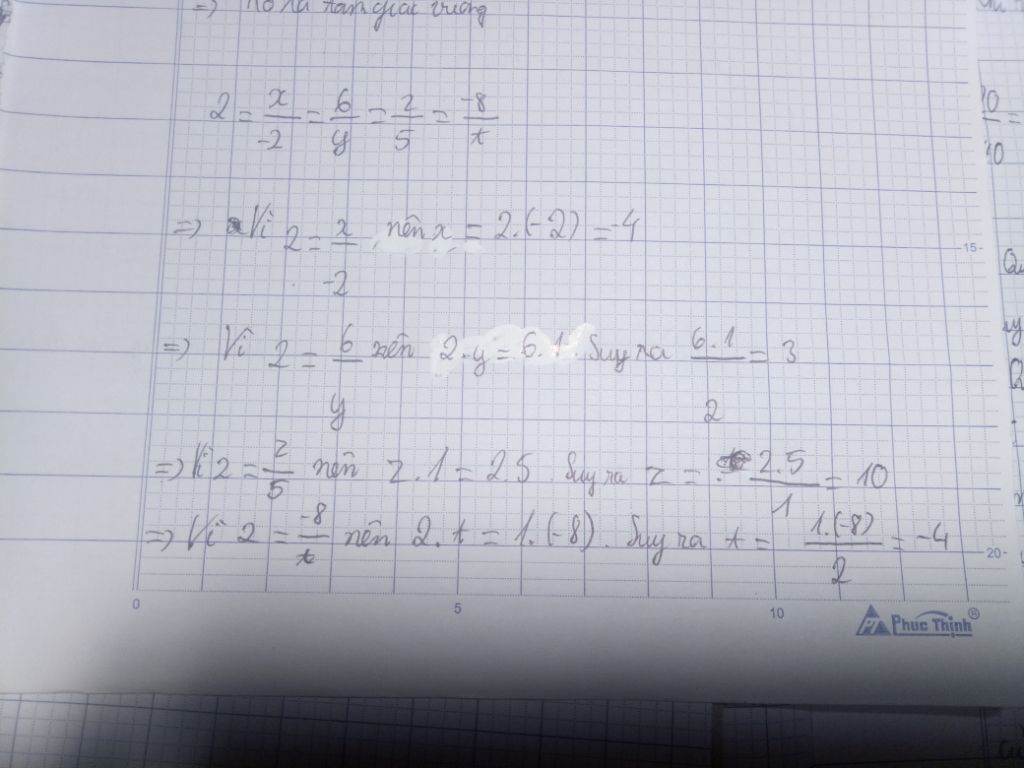 => Nó là tam giác vuông
2 = x/-2 = 6/y = z/5 = -8/t
=> Vì 2 = x/-2 nên x = 2.(-2) = -4
=> Vì 2 = 6/y nên 2.y = 6.1. Suy ra 6.1/2 = 3
=> Vì 2 = z/5 nên z.1 = 2.5 Suy ra z = 2.5/1 = 10
=> Vì 2 = -8/t nên 2.t = 1.(-8). Suy ra t = 1.(-8)/2 = -4
15
20
0 5 10
Phuc Thịnh®